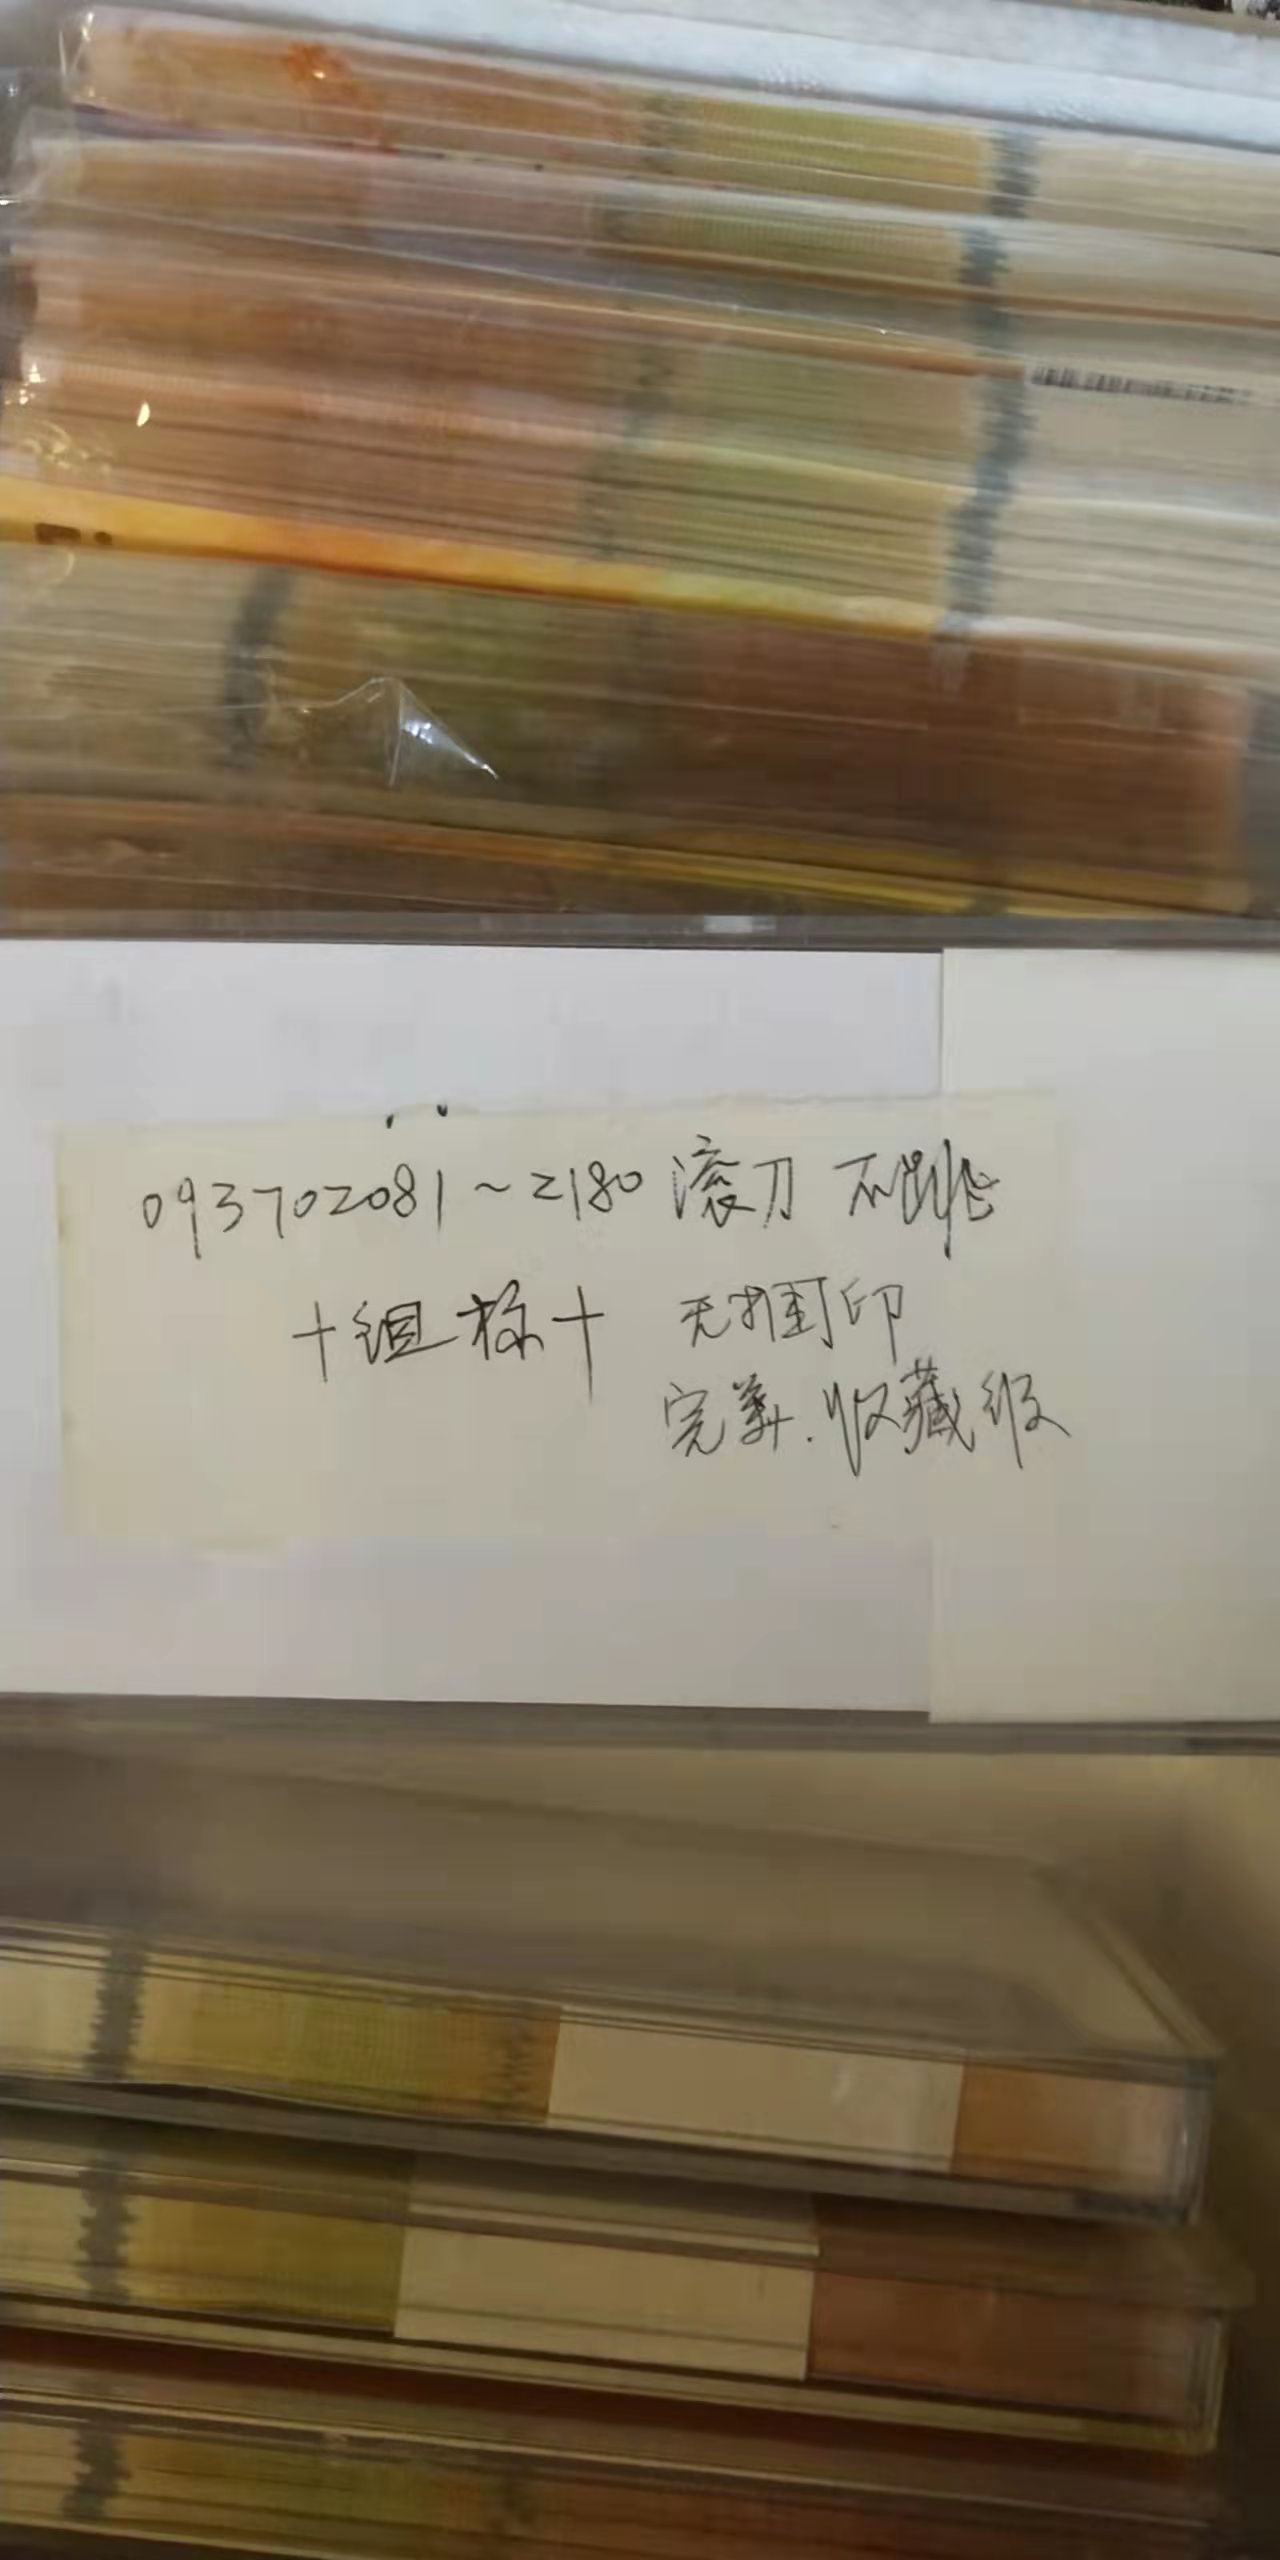 093702081~2180 滚刀 不跳
十组标十 无捆封印
完美.收藏级